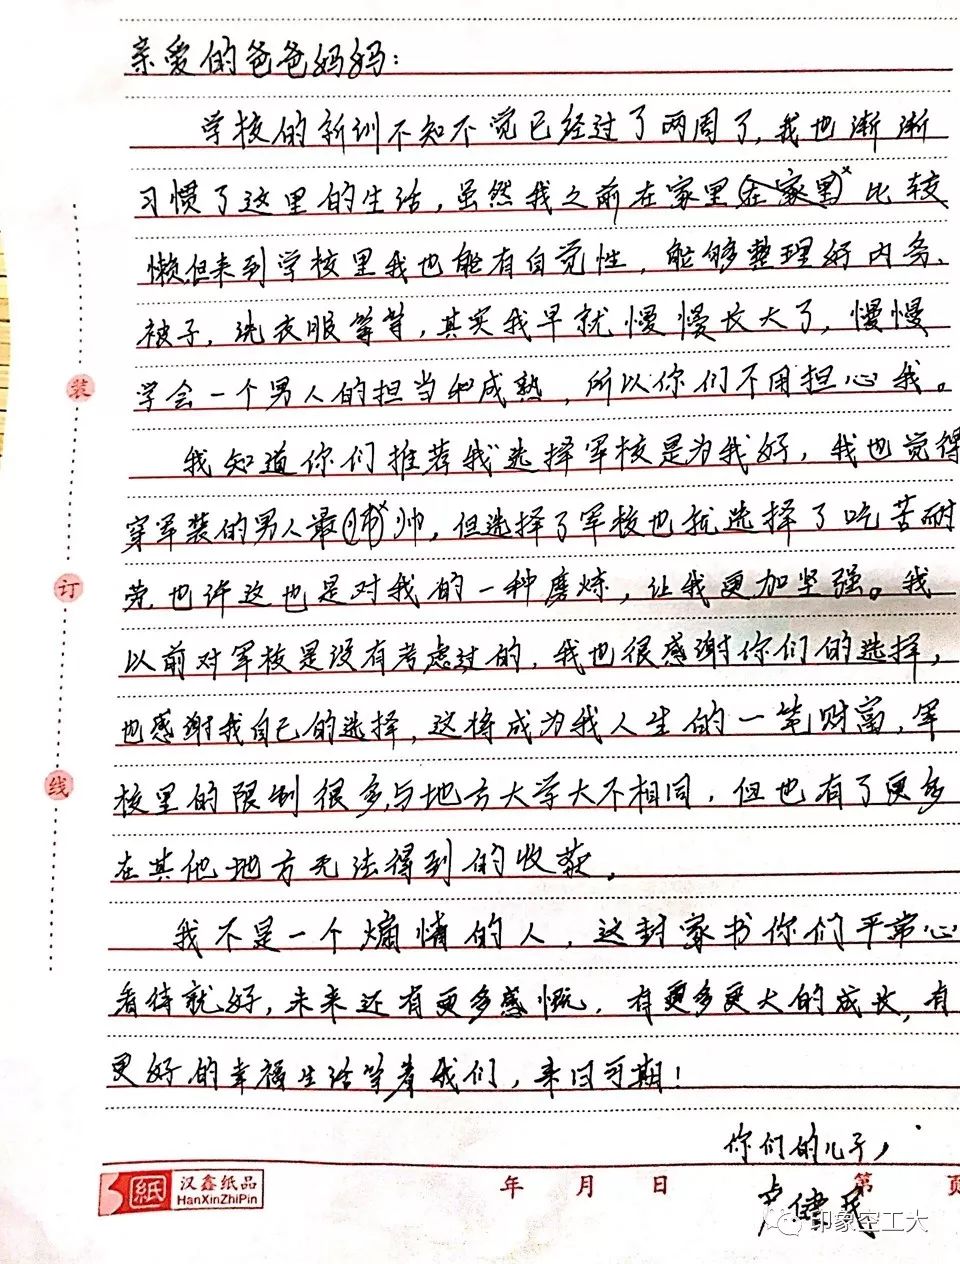 亲爱的爸爸妈妈：
学校的新训不知不觉已经过了两周了，我也渐渐
习惯了这里的生活，虽然我之前在家里(在家里)×比较
懒，但来到学校里我也能有自觉性，能够整理好内务、
被子，洗衣服等等，其实我早就慢慢长大了，慢慢
学会一个男人的担当和成熟，所以你们不用担心我。
我知道你们推荐我选择军校是为我好，我也觉得
穿军装的男人最(帅)×帅，但选择了军校也就选择了吃苦耐
劳，也许这也是对我的一种磨炼，让我更加坚强。我
以前对军校是没有考虑过的，我也很感谢你们的选择，
也感谢我自己的选择，这将成为我人生的一笔财富，军
校里的限制很多，与地方大学大不相同，但也有了更多
在其他地方无法得到的收获。
我不是一个煽情的人，这封家书你们平常心
看待就好，未来还有更多感慨，有更多更大的成长，有
更好的幸福生活等着我们，来日可期！
你们的儿子，
卢健
装
订
线
紙 汉鑫纸品
HanXinZhiPin
年 月 日 第 页
印象空工大